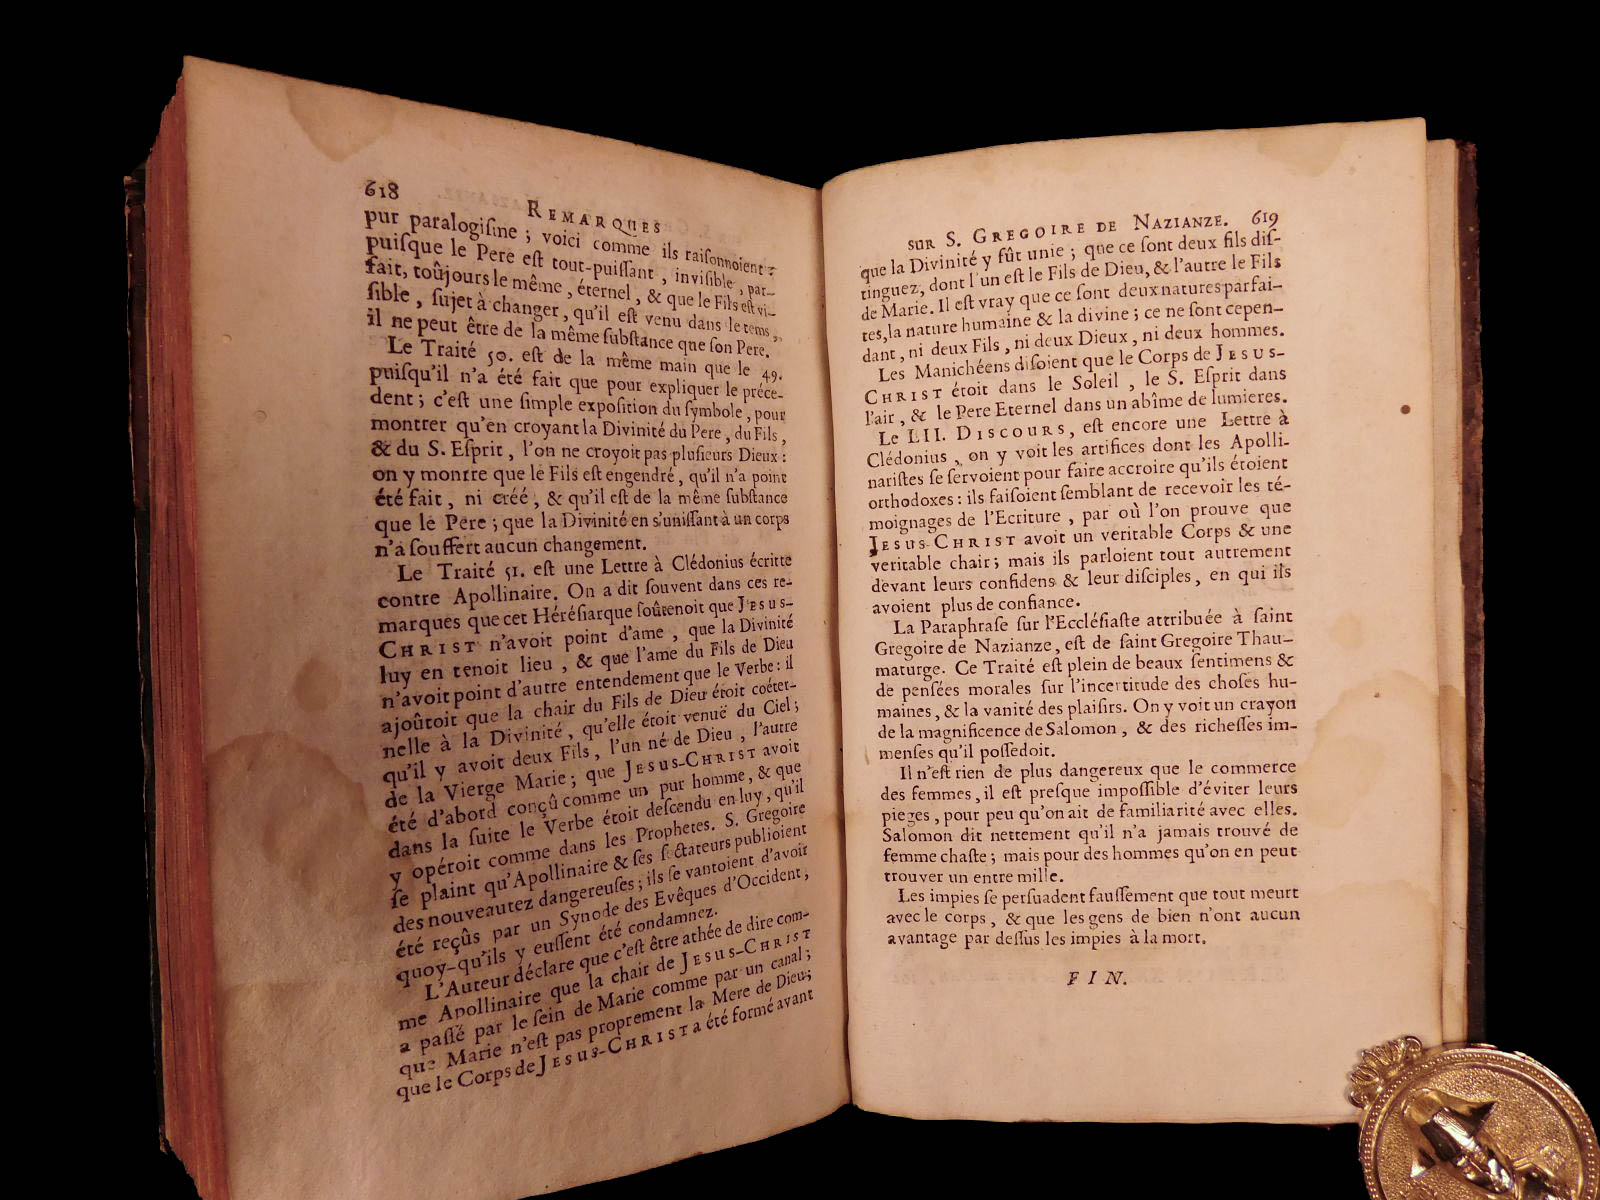 618 REMARQUES
pur paralogiſme ; voici comme ils raiſonnoient :
puiſque le Pere eſt tout-puiſſant , inviſible , par-
fait, toûjours le même , éternel , & que le Fils eſt vi-
ſible , ſujet à changer, qu'il eſt venu dans le tems ,
il ne peut être de la même ſubſtance que ſon Pere.
Le Traité 50. eſt de la même main que le 49.
puiſqu'il n'a été fait que pour expliquer le préce-
dent ; c'eſt une ſimple expoſition du ſymbole, pour
montrer qu'en croyant la Divinité du Pere , du Fils ,
& du S. Eſprit , l'on ne croyoit pas pluſieurs Dieux :
on y montre que le Fils eſt engendré , qu'il n'a point
été fait , ni créé , & qu'il eſt de la même ſubſtance
que le Pere ; que la Divinité en s'uniſſant à un corps
n'a ſouffert aucun changement.
Le Traité 51. eſt une Lettre à Clédonius écritte
contre Apollinaire. On a dit ſouvent dans ces re-
marques que cet Héréſiarque ſoûtenoit que JESUS-
CHRIST n'avoit point d'ame , que la Divinité
luy en tenoit lieu , & que l'ame du Fils de Dieu
n'avoit point d'autre entendement que le Verbe : il
ajoûtoit que la chair du Fils de Dieu étoit coéter-
nelle à la Divinité , qu'elle étoit venuë du Ciel ;
qu'il y avoit deux Fils, l'un né de Dieu , l'autre
de la Vierge Marie ; que JESUS-CHRIST avoit
été d'abord conçû comme un pur homme , & que
dans la ſuite le Verbe étoit deſcendu en luy , qu'il
y opéroit comme dans les Prophetes. S. Gregoire
ſe plaint qu'Apollinaire & ſes ſectateurs publioient
des nouveautez dangereuſes ; ils ſe vantoient d'avoir
été reçûs par un Synode des Evêques d'Occident ,
quoy-qu'ils y euſſent été condamnez.
L'Auteur déclare que c'eſt être athée de dire com-
me Apollinaire que la chair de JESUS-CHRIST
a paſſé par le ſein de Marie comme par un canal ;
que Marie n'eſt pas proprement la Mere de Dieu ;
que le Corps de JESUS-CHRIST a été formé avant
SUR S. GREGOIRE DE NAZIANZE. 619
que la Divinité y fût unie ; que ce ſont deux fils diſ-
tinguez, dont l'un eſt le Fils de Dieu, & l'autre le Fils
de Marie. Il eſt vray que ce ſont deux natures parfai-
tes, la nature humaine & la divine ; ce ne ſont cepen-
dant , ni deux Fils , ni deux Dieux , ni deux hommes.
Les Manichéens diſoient que le Corps de JESUS-
CHRIST étoit dans le Soleil , le S. Eſprit dans
l'air , & le Pere Eternel dans un abîme de lumieres.
Le LII. DISCOURS, eſt encore une Lettre à
Clédonius , on y voit les artifices dont les Apolli-
nariſtes ſe ſervoient pour faire accroire qu'ils étoient
orthodoxes : ils faiſoient ſemblant de recevoir les té-
moignages de l'Ecriture , par où l'on prouve que
JESUS-CHRIST avoit un veritable Corps & une
veritable chair ; mais ils parloient tout autrement
devant leurs confidens & leur diſciples , en qui ils
avoient plus de confiance.
La Paraphraſe ſur l'Eccléſiaſte attribuée à ſaint
Gregoire de Nazianze, eſt de ſaint Gregoire Thau-
maturge. Ce Traité eſt plein de beaux ſentimens &
de penſées morales ſur l'incertitude des choſes hu-
maines , & la vanité des plaiſirs. On y voit un crayon
de la magnificence de Salomon , & des richeſſes im-
menſes qu'il poſſedoit.
Il n'eſt rien de plus dangereux que le commerce
des femmes , il eſt preſque impoſſible d'éviter leurs
pieges , pour peu qu'on ait de familiarité avec elles.
Salomon dit nettement qu'il n'a jamais trouvé de
femme chaſte ; mais pour des hommes qu'on en peut
trouver un entre mille.
Les impies ſe perſuadent fauſſement que tout meurt
avec le corps , & que les gens de bien n'ont aucun
avantage par deſſus les impies à la mort.
FIN.